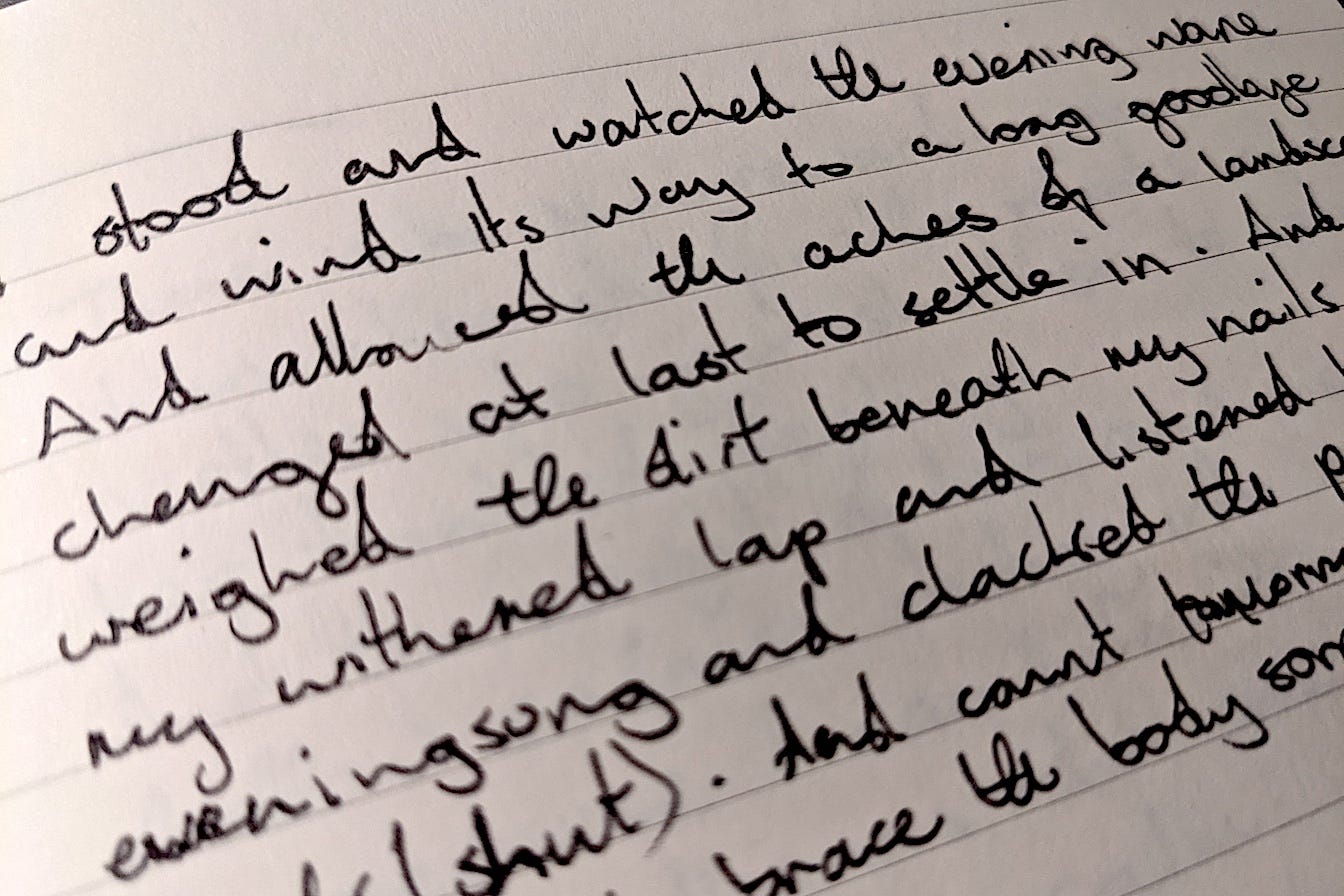 stood and watched the evening wane
and wind its way to a long goodbye
And allowed the aches of a landsc
changed at last to settle in. And
weighed the dirt beneath my nails
my withered lap and listened
eveningsong and clacked the p
(shut). And count tomorr
brace the body som